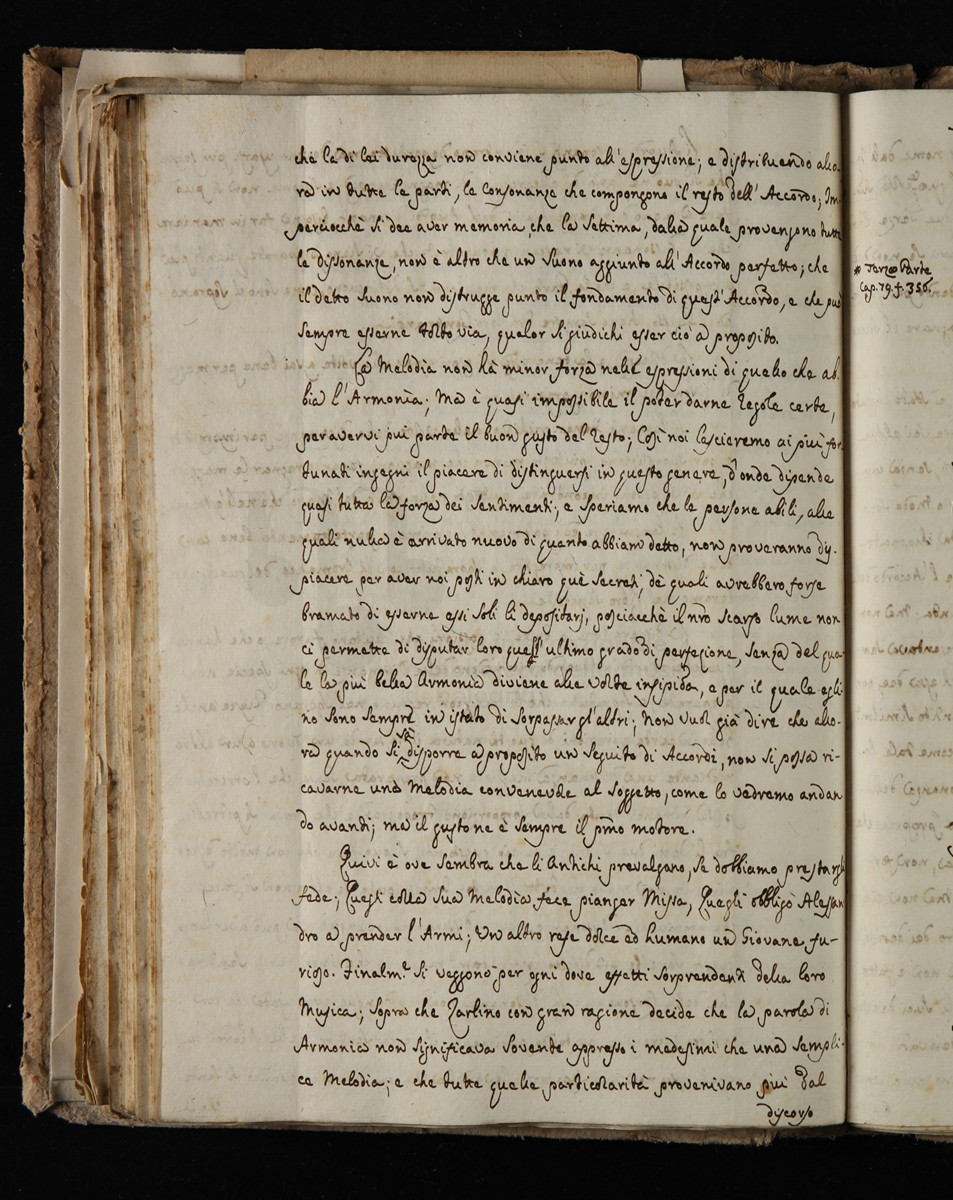 che la di lei durezza non conviene punto all'espressione; e distribuendo allo-
ra in tutte le parti, le Consonanze che compongono il resto dell'Accordo; Im
perciocchè si dee aver memoria, che la Settima, dalla quale provengono tutte
le dissonanze, non è altro che un Suono aggiunto all'Accordo perfetto; che
il detto suono non distrugge punto il fondamento di quest'Accordo, e che può
sempre esserne tolto via, qualor si giudichi esser ciò a proposito.
La Melodia non hà minor forza nelle espressioni di quello che ab-
bia l'Armonia; Ma è quasi impossibile il poter darne regole certe,
per avervi più parte il buon gusto del resto; Così noi lascieremo ai più for
tunati ingegni il piacere di distinguersi in questo genere, d'onde dipende
quasi tutta la forza dei Sentimenti; e speriamo che le persone abili, alle
quali nulla è arrivato nuovo di quanto abbiam detto, non proveranno dis-
piacere per aver noi posti in chiaro què Secreti, dè quali avrebbero forse
bramato di esserne essi soli li depositarj, posciacchè il nrō scarso lume non
ci permette di disputar loro quest'ultimo grado di perfezione, senza del qua-
le la più bella Armonia diviene alle volte insipida, e per il quale egli-
no sono sempre in istato di sorpassar gl'altri; Non vuol già dire che allo-
ra quando si sà disporre a proposito un Seguito di Accordi, non si possa ri-
cavarne una Melodia convenevole al Soggetto, come lo vedremo andan
do avanti; ma il gusto ne è sempre il pm̄o motore.
Quivi è ove sembra che li Antichi prevalgano, se dobbiamo prestargli
fede; Questi colla Sua Melodia fece pianger Ulissa, Quegli obbligò Alessan
dro a prender l'Armi; Un altro rese dolce ed humano un Giovane fu-
rioso. Finalm.e si veggono per ogni dove effetti sorprendenti della loro
Musica; sopra che Zarlino con gran ragione decide che la parola di
Armonia non significava sovente appresso i medesimi che una sempli-
ce Melodia; e che tutte quelle particolarità provenivano più dal
discorso
* Terza Parte
Cap. 79. f. 356.